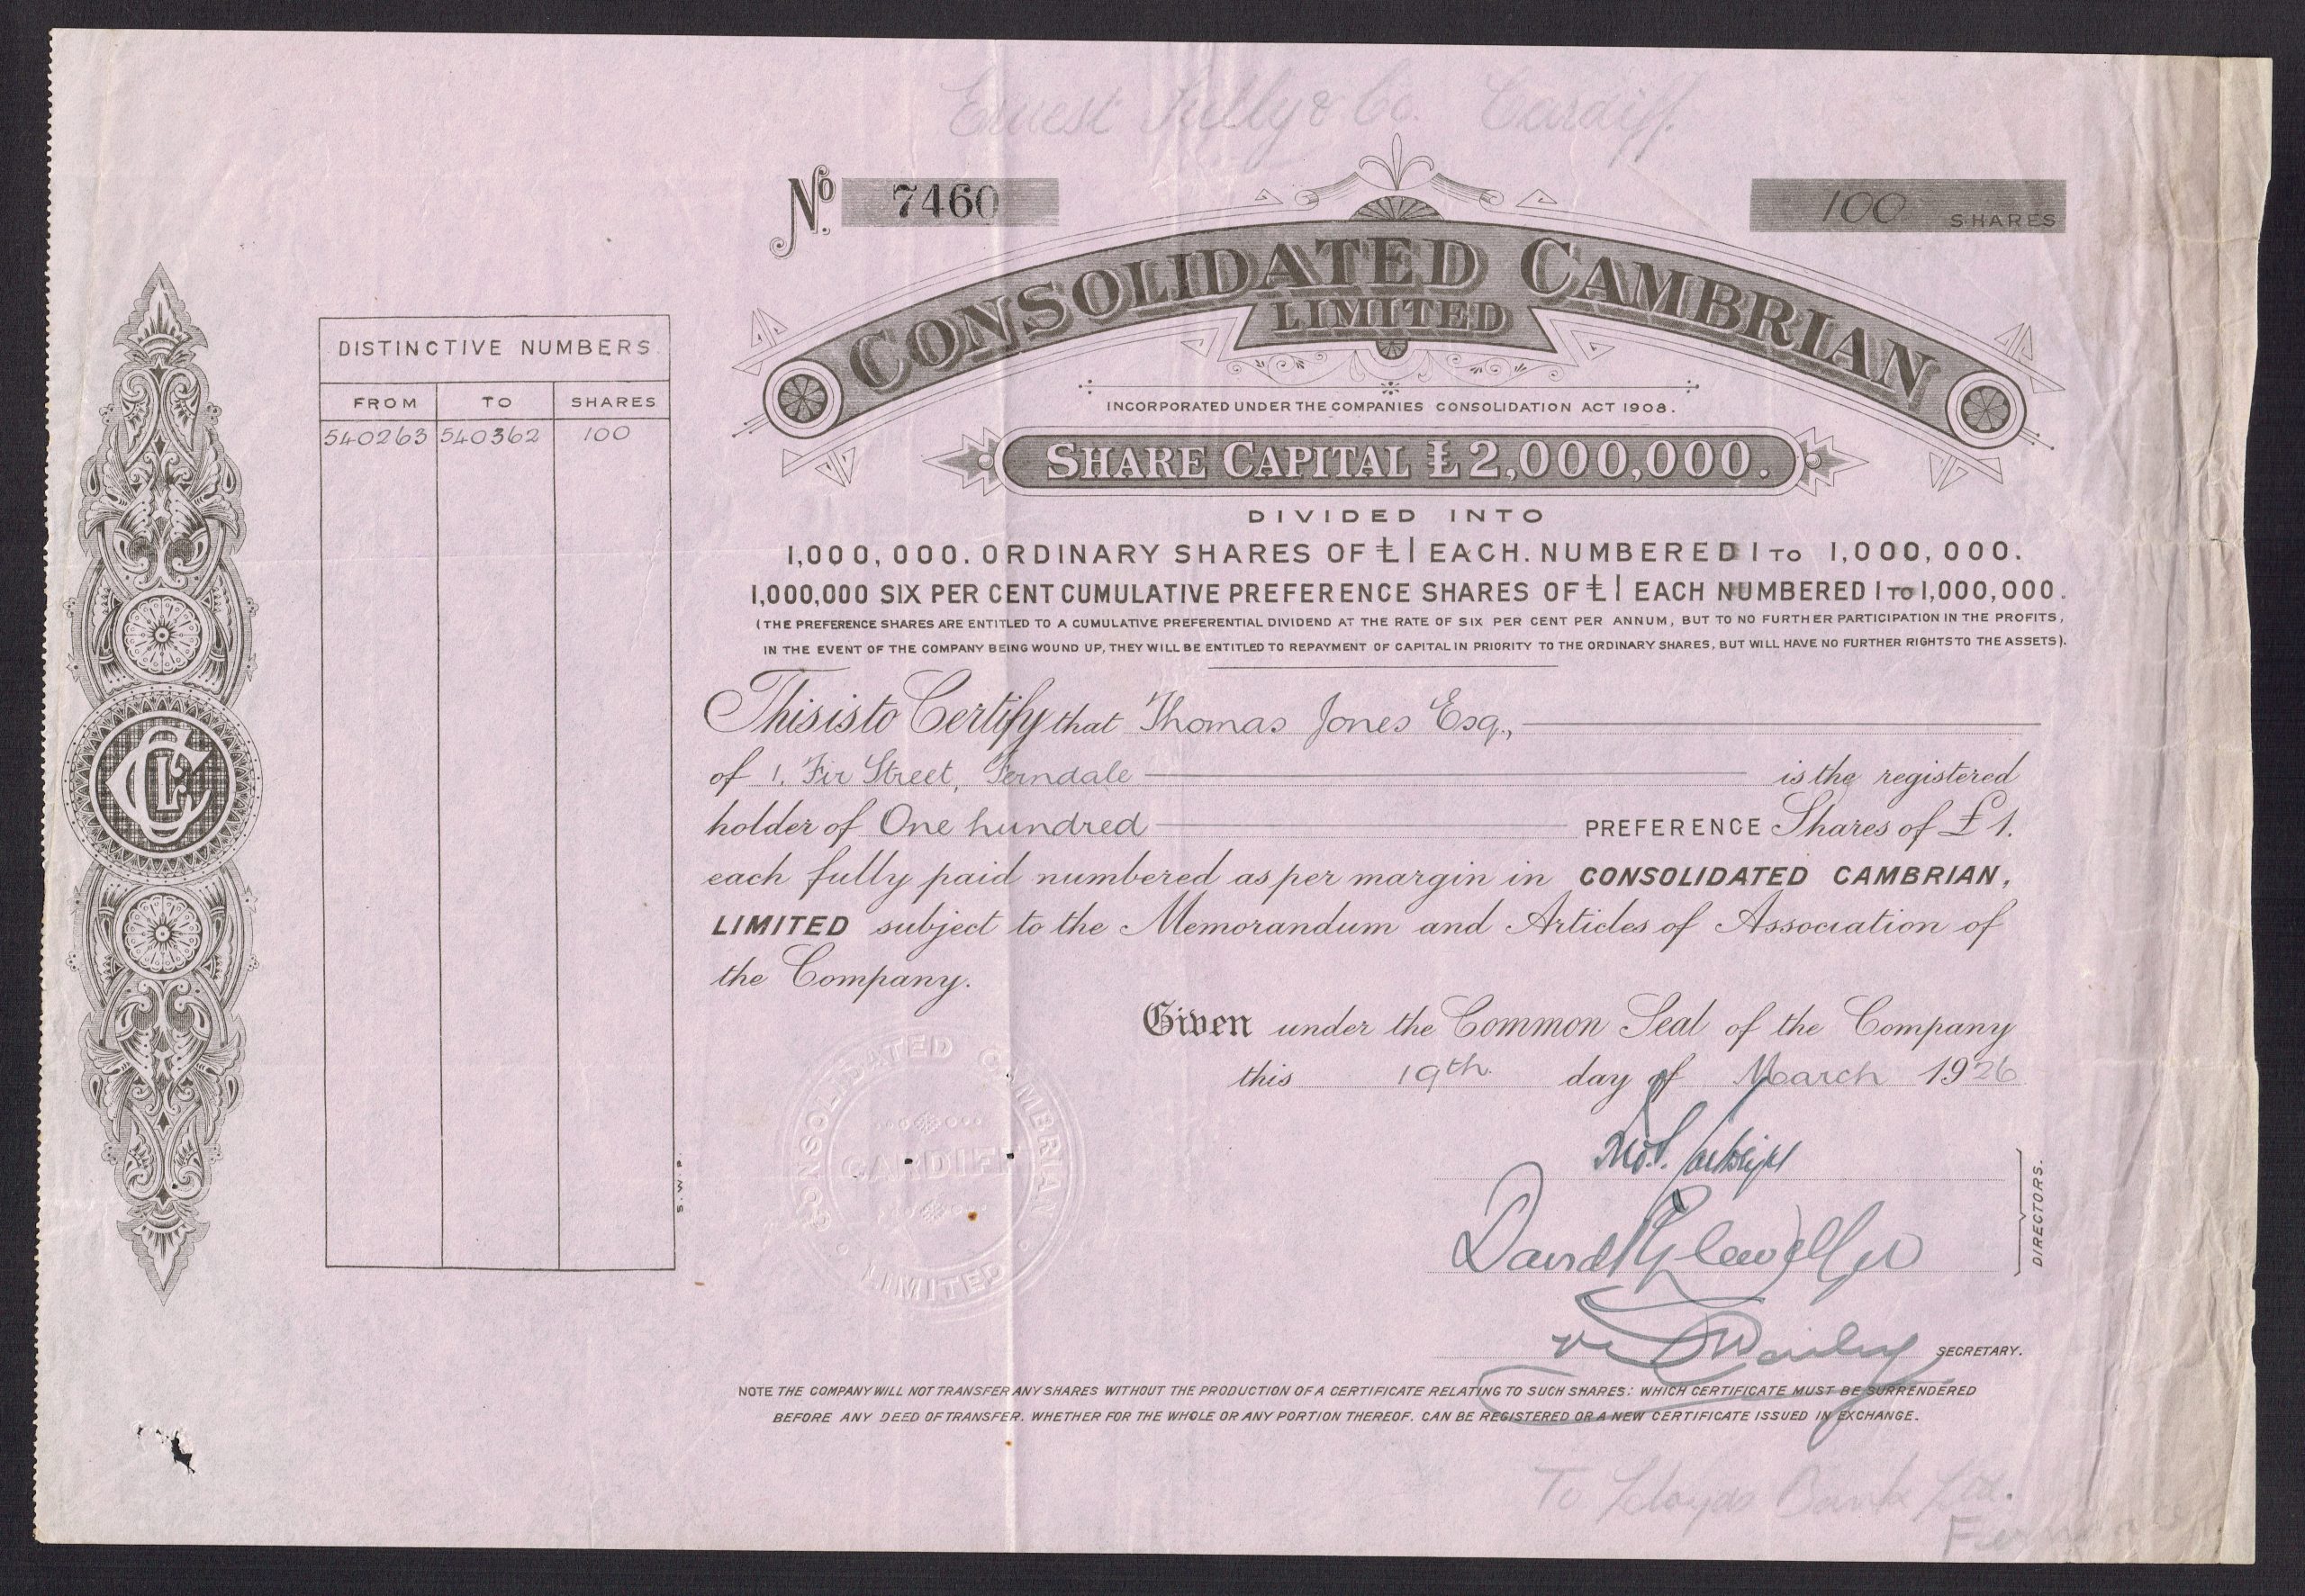 Ernest Tully & Co. Cardiff.
No. 7460
100 SHARES
CONSOLIDATED CAMBRIAN
LIMITED
INCORPORATED UNDER THE COMPANIES CONSOLIDATION ACT 1908.
SHARE CAPITAL £2,000,000.
DIVIDED INTO
1,000,000. ORDINARY SHARES OF £1 EACH. NUMBERED 1 TO 1,000,000.
1,000,000 SIX PER CENT CUMULATIVE PREFERENCE SHARES OF £1 EACH NUMBERED 1 TO 1,000,000.
(THE PREFERENCE SHARES ARE ENTITLED TO A CUMULATIVE PREFERENTIAL DIVIDEND AT THE RATE OF SIX PER CENT PER ANNUM, BUT TO NO FURTHER PARTICIPATION IN THE PROFITS,
IN THE EVENT OF THE COMPANY BEING WOUND UP, THEY WILL BE ENTITLED TO REPAYMENT OF CAPITAL IN PRIORITY TO THE ORDINARY SHARES, BUT WILL HAVE NO FURTHER RIGHTS TO THE ASSETS).
DISTINCTIVE NUMBERS
FROM TO SHARES
540263 540362 100
This is to Certify that Thomas Jones Esq.,
of 1. Fir Street, Ferndale is the registered
holder of One hundred PREFERENCE Shares of £1.
each fully paid numbered as per margin in CONSOLIDATED CAMBRIAN,
LIMITED subject to the Memorandum and Articles of Association of
the Company.
Given under the Common Seal of the Company
this 19th day of March 1926
CONSOLIDATED CAMBRIAN
CARDIFF
LIMITED
S.W.P.
David R Llewellyn
DIRECTORS.
SECRETARY.
NOTE THE COMPANY WILL NOT TRANSFER ANY SHARES WITHOUT THE PRODUCTION OF A CERTIFICATE RELATING TO SUCH SHARES: WHICH CERTIFICATE MUST BE SURRENDERED
BEFORE ANY DEED OF TRANSFER. WHETHER FOR THE WHOLE OR ANY PORTION THEREOF. CAN BE REGISTERED OR A NEW CERTIFICATE ISSUED IN EXCHANGE.
To Lloyds Bank Ltd.